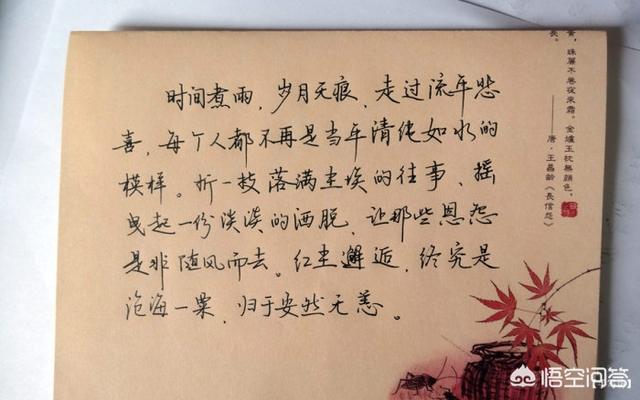 时间煮雨，岁月无痕，走过流年悲
喜，每个人都不再是当年清纯如水的
模样。折一枝落满尘埃的往事，摇
曳起一份淡淡的洒脱，让那些恩怨
是非随风而去。红尘邂逅，终究是
沧海一粟，归于安然无恙。
黄，珠簾不卷夜來霜。金爐玉枕無顏色，
長。
——唐·王昌齡《長信怨》
悟空问答